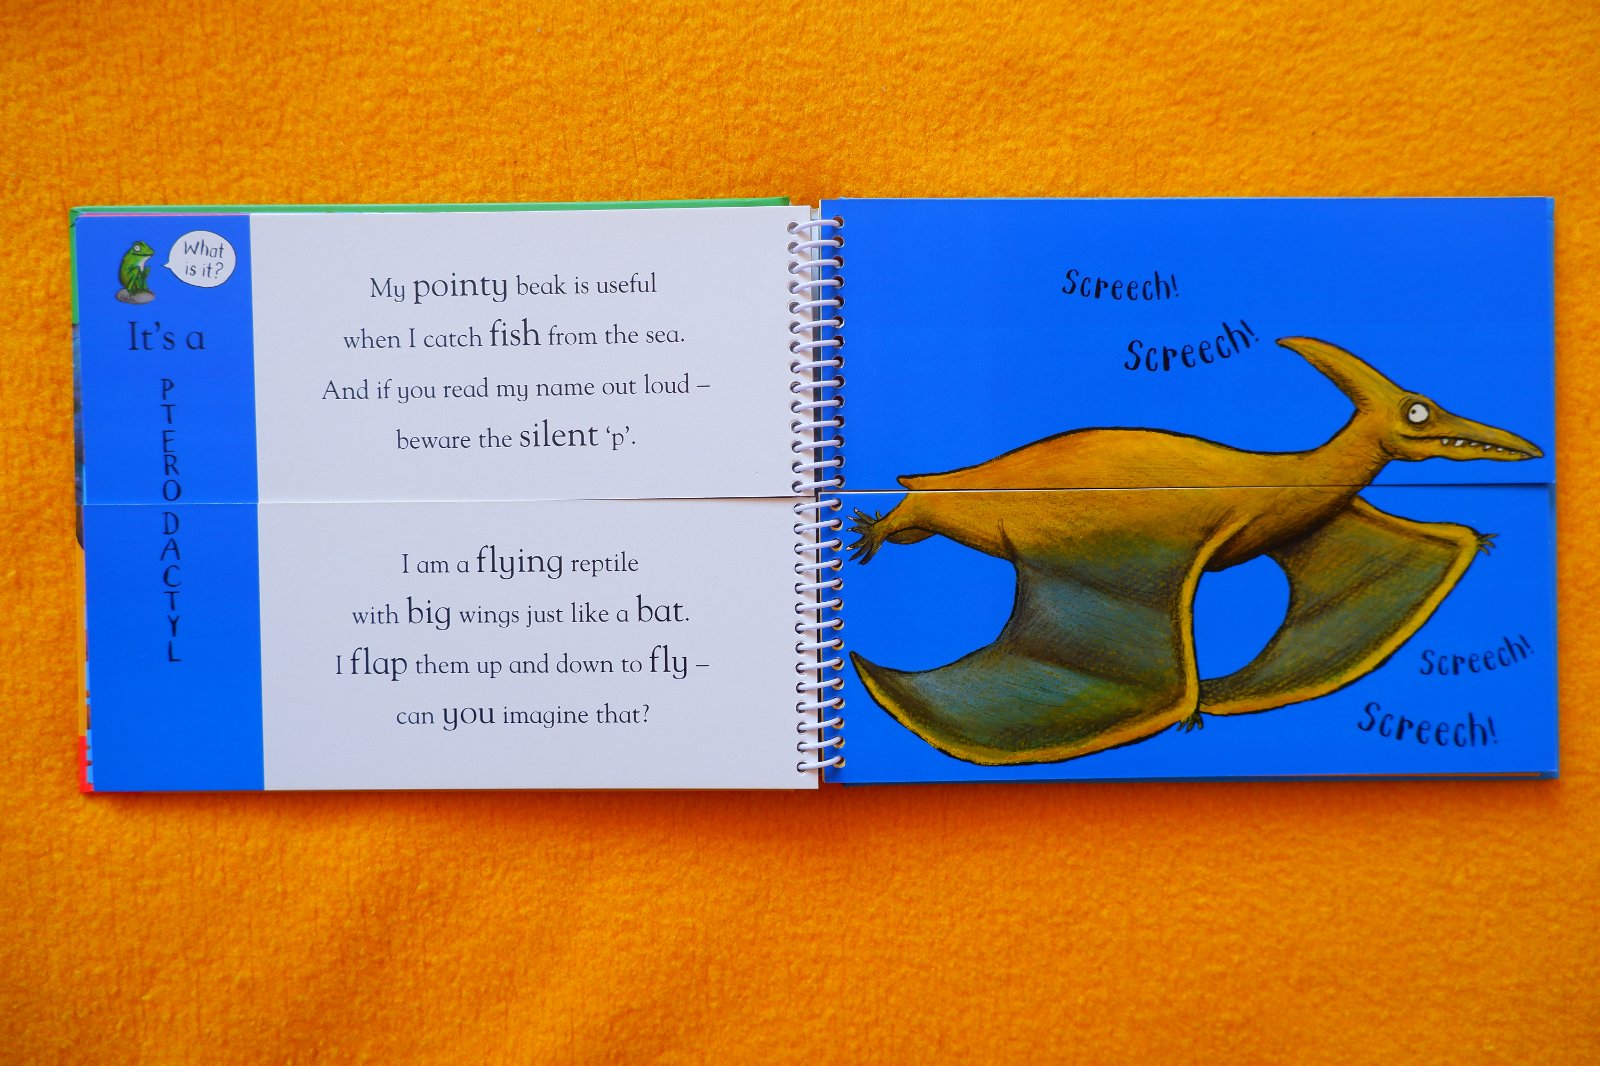 What
is it?
It's a
PTERODACTYL
My pointy beak is useful
when I catch fish from the sea.
And if you read my name out loud –
beware the silent ‘p’.
I am a flying reptile
with big wings just like a bat.
I flap them up and down to fly –
can you imagine that?
Screech!
Screech!
Screech!
Screech!